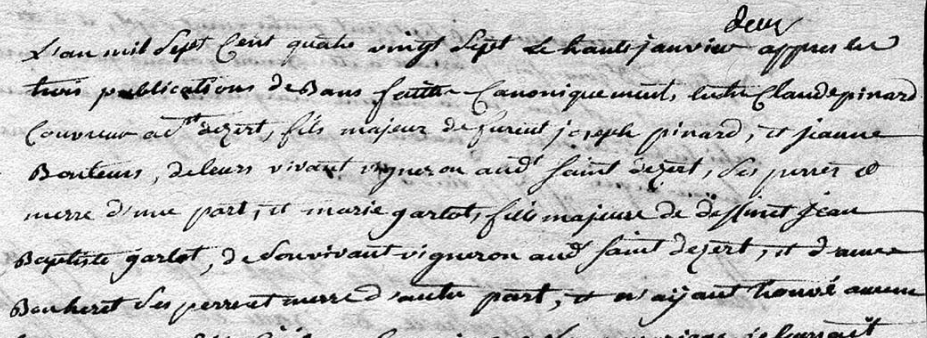 deux
L'an mil sept cent quatre vingt sept le trante janvier appres les
trois publications de Bans faitte Canoniquement, entre Claude pinard
Couvreur a st dezert, fils majeur de furent joseph pinard, et jeanne
Bontems, de leurs vivant vigneron audt saint dezert, ses perres et
merre d'une part, et marie garlot, fille majeure de deffunct jean
Baptiste garlot, de Son vivant vigneron audt saint dezert, et d'anne
Bouheret ses perre et merre d'autre part, et n'aijant trouvé aucun
mariage